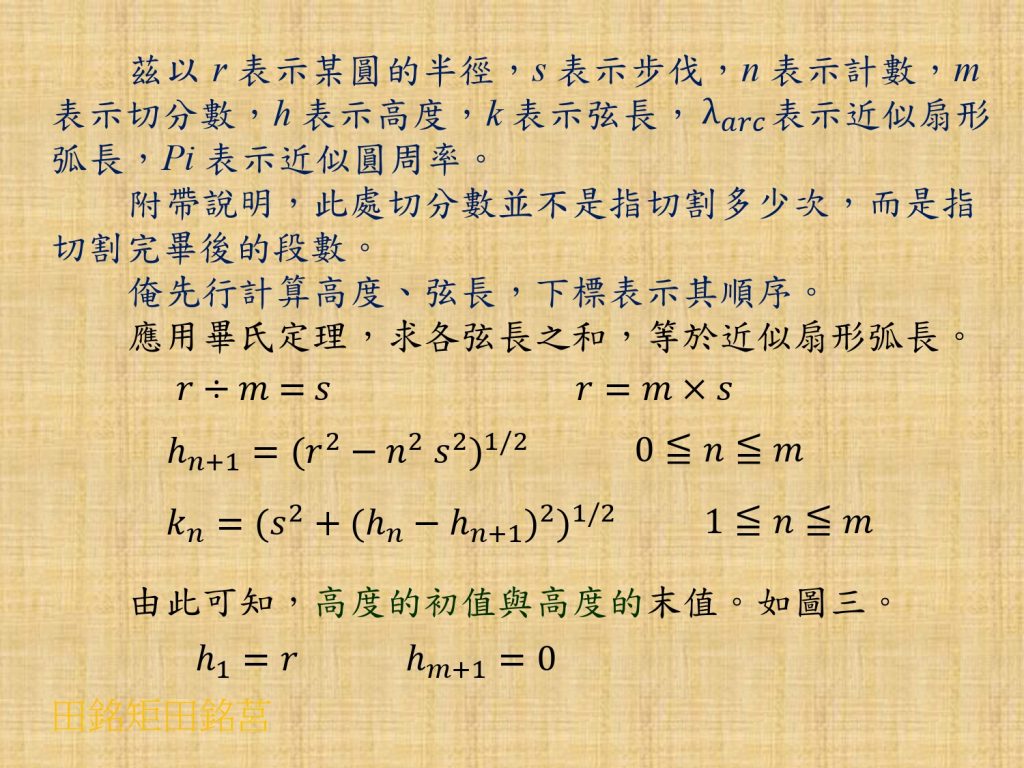 茲以 r 表示某圓的半徑，s 表示步伐，n 表示計數，m
表示切分數，h 表示高度，k 表示弦長，λ_arc 表示近似扇形
弧長，Pi 表示近似圓周率。
附帶說明，此處切分數並不是指切割多少次，而是指
切割完畢後的段數。
俺先行計算高度、弦長，下標表示其順序。
應用畢氏定理，求各弦長之和，等於近似扇形弧長。
r ÷ m = s r = m × s
h_{n+1} = (r² − n² s²)^{1/2} 0 ≦ n ≦ m
k_n = (s² + (h_n − h_{n+1})²)^{1/2} 1 ≦ n ≦ m
由此可知，高度的初值與高度的末值。如圖三。
h_1 = r h_{m+1} = 0
田銘矩田銘莒